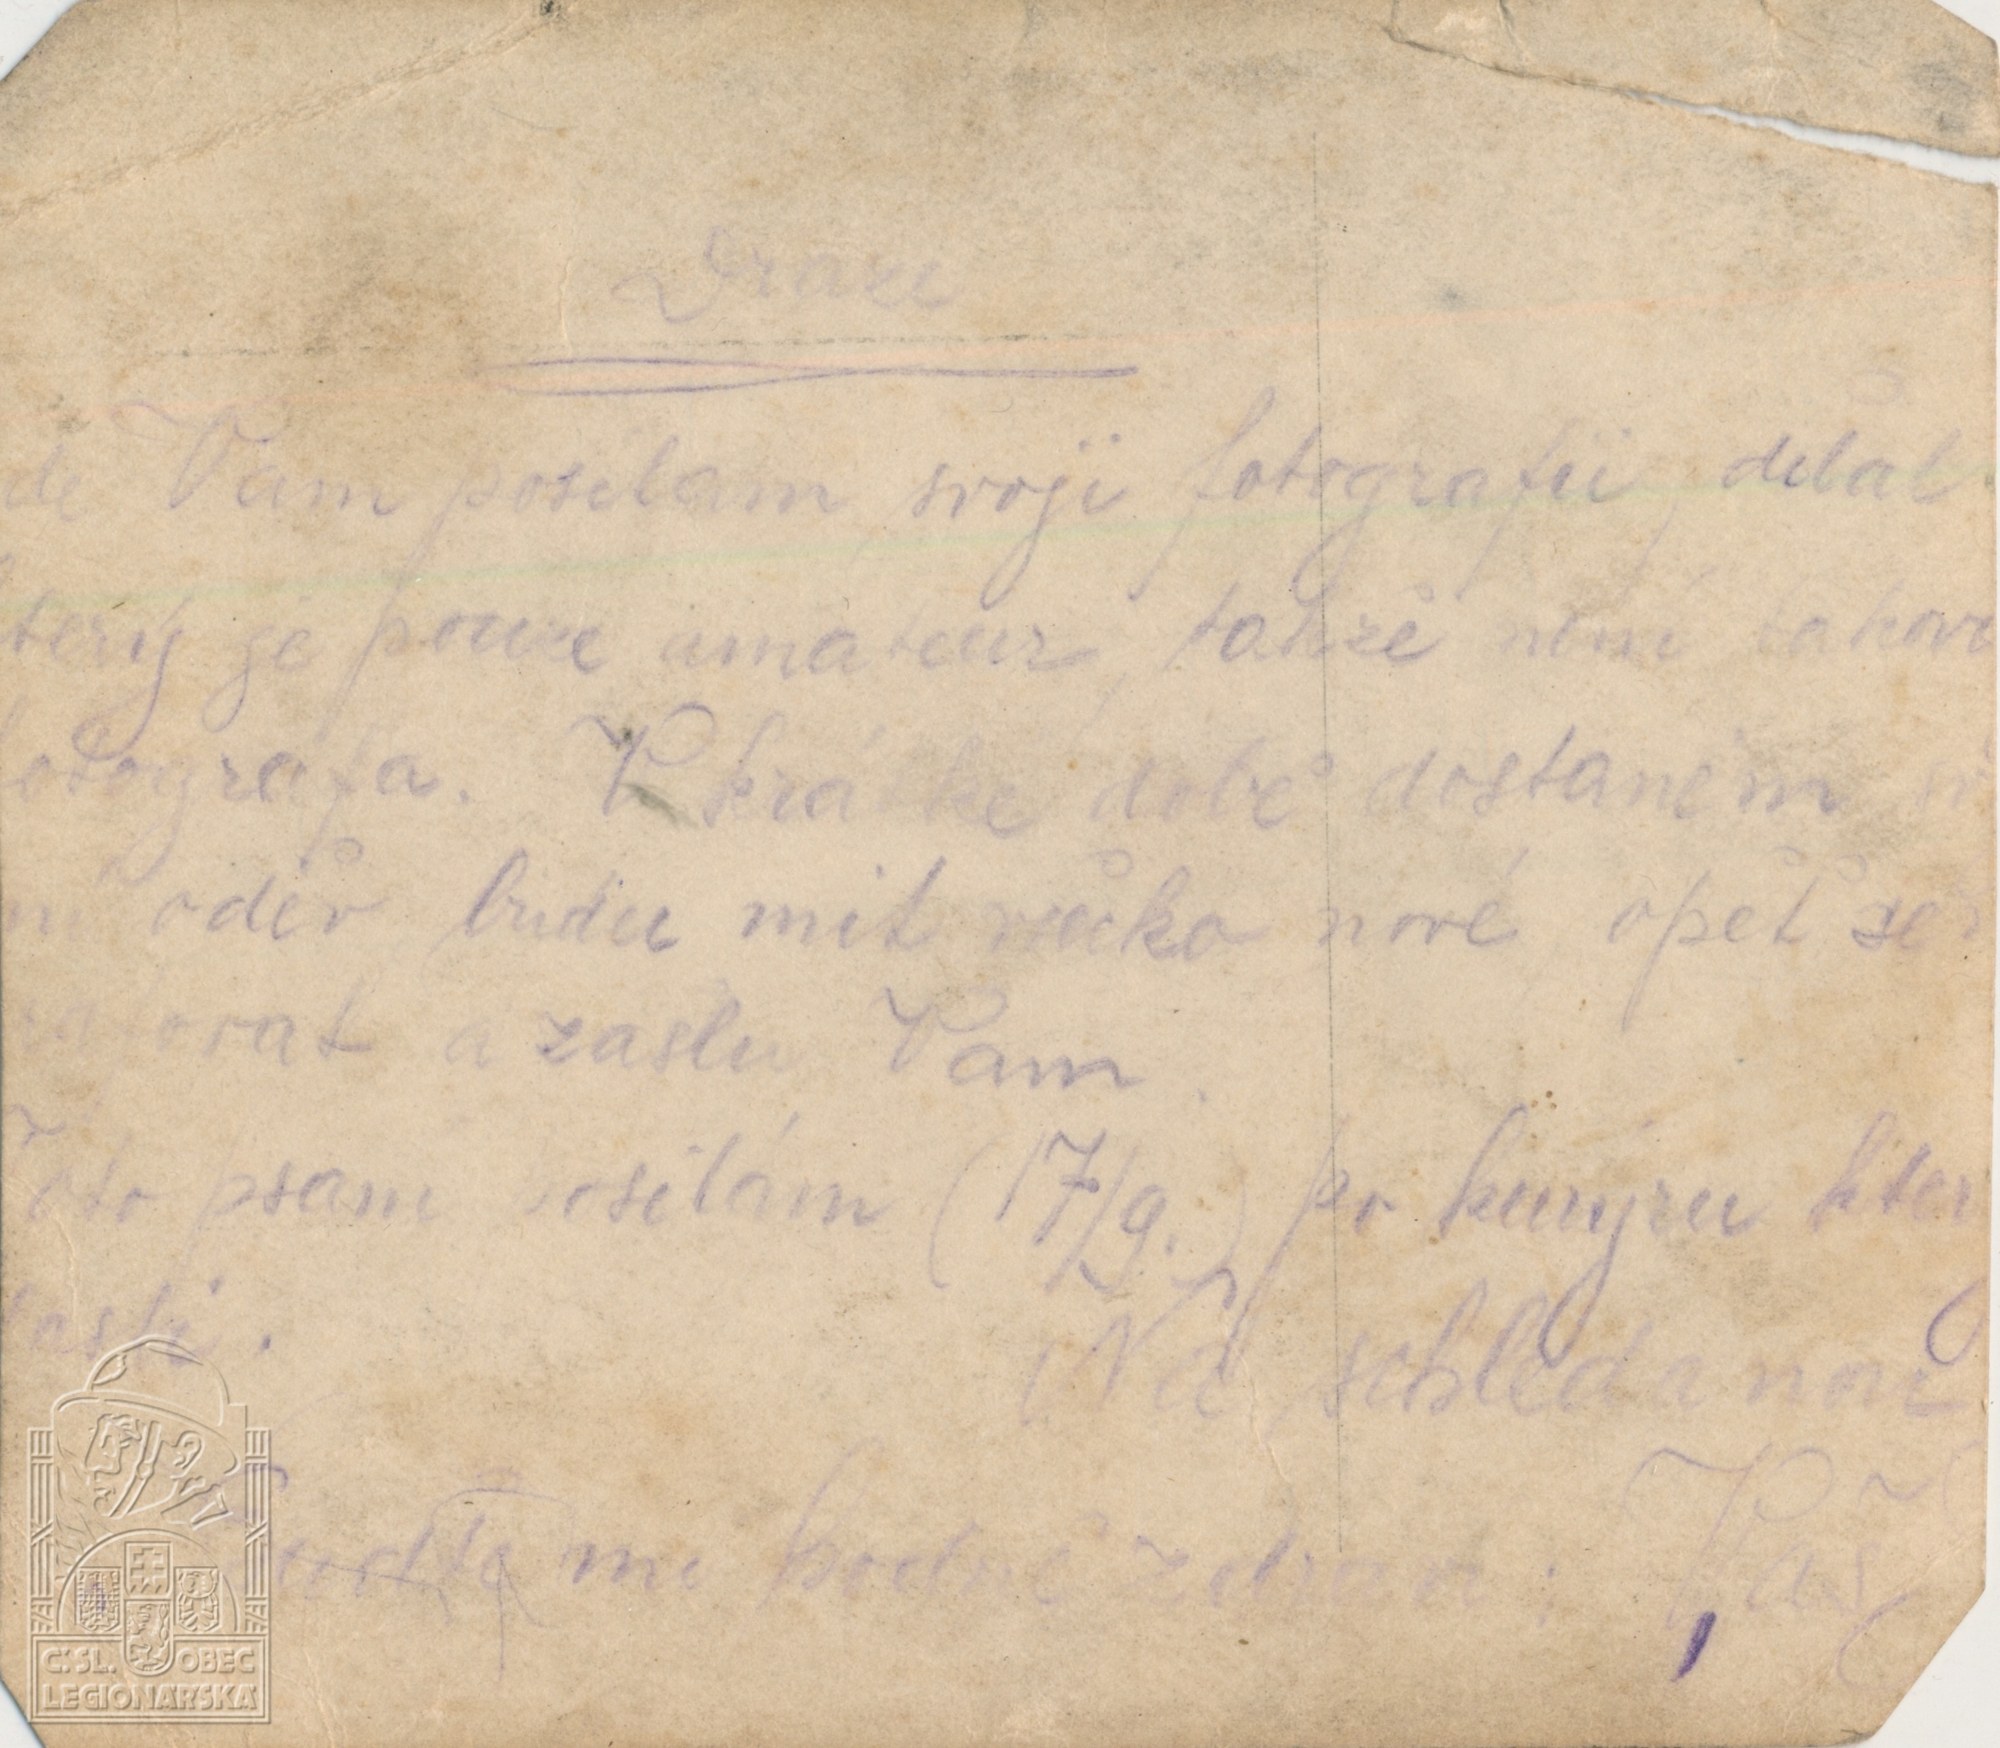 Drazí
de Vám posílám svoji fotografii, dělal
terý je pouze amateur, takže není takov
fotografa. V krátké době dostanem
ní oděv budu mít všecko nové, opět se
ovat a zašlu Vám.
Toto psaní posílám (17/9.) po kurýru kter
tosti.
Na schledanou
mi hodně zdraví; Váš
Č.SL. OBEC
LEGIONÁŘSKÁ